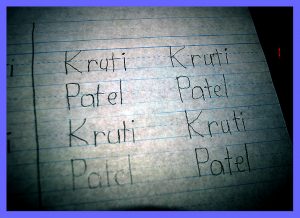 Kruti Kruti
Patel Patel
Kruti Kruti
Patel Patel